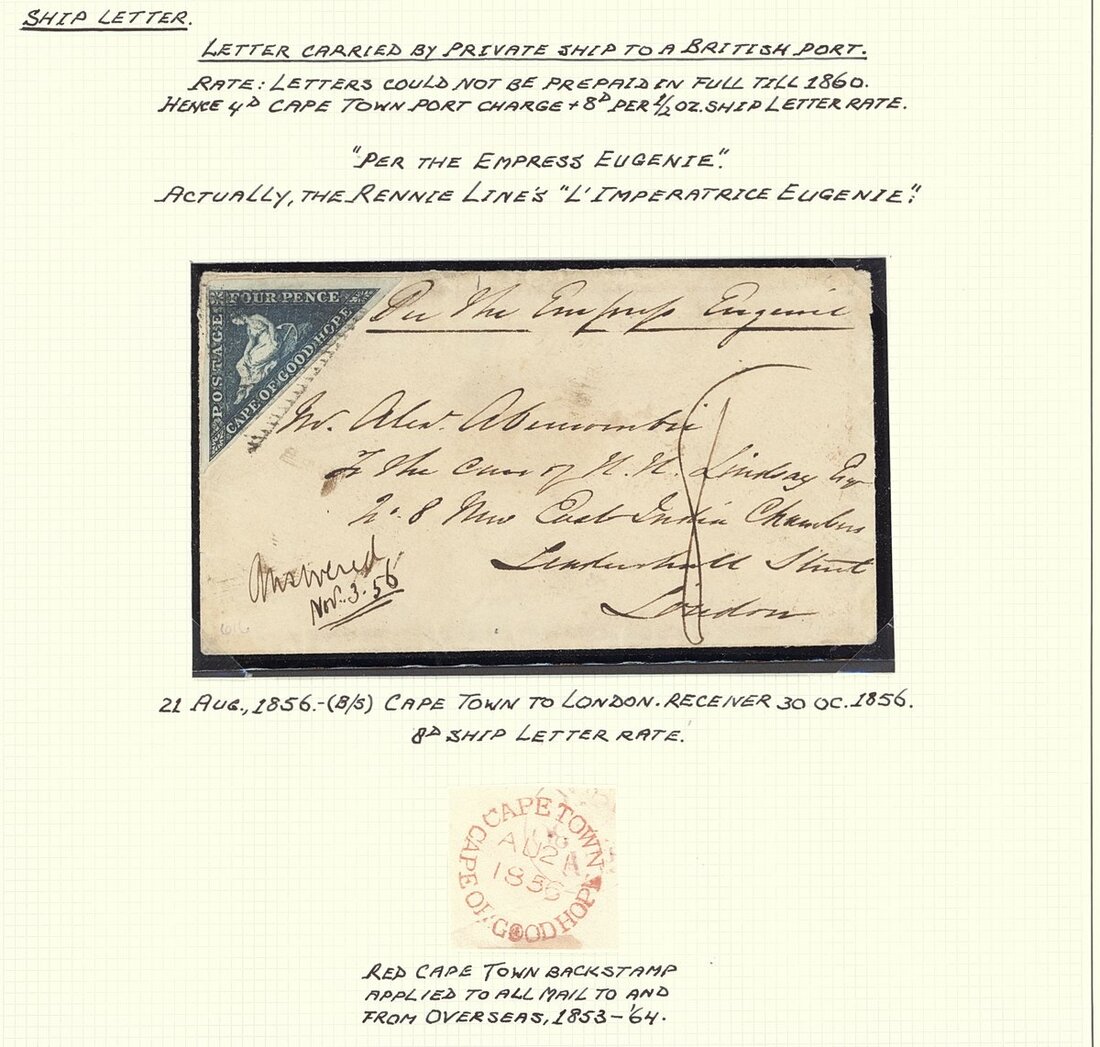 SHIP LETTER.
LETTER CARRIED BY PRIVATE SHIP TO A BRITISH PORT.
RATE: LETTERS COULD NOT BE PREPAID IN FULL TILL 1860.
HENCE 4D CAPE TOWN PORT CHARGE + 8D PER 1/2 OZ. SHIP LETTER RATE.
"PER THE EMPRESS EUGENIE".
ACTUALLY, THE RENNIE LINE'S "L'IMPERATRICE EUGENIE".
FOUR PENCE
POSTAGE
CAPE OF GOOD HOPE
Per The Empress Eugenie
Mr. Alexr. Abercrombie
To the care of H. H. Lindsay Esqr
No. 8 New East India Chambers
Leadenhall Street
London
Answered
Nov. 3. 56
21 AUG., 1856.-(B/S) CAPE TOWN TO LONDON. RECEIVER 30 OC. 1856.
8D SHIP LETTER RATE.
CAPE TOWN
AU2
1856
CAPE OF GOOD HOPE
RED CAPE TOWN BACKSTAMP
APPLIED TO ALL MAIL TO AND
FROM OVERSEAS, 1853-'64.